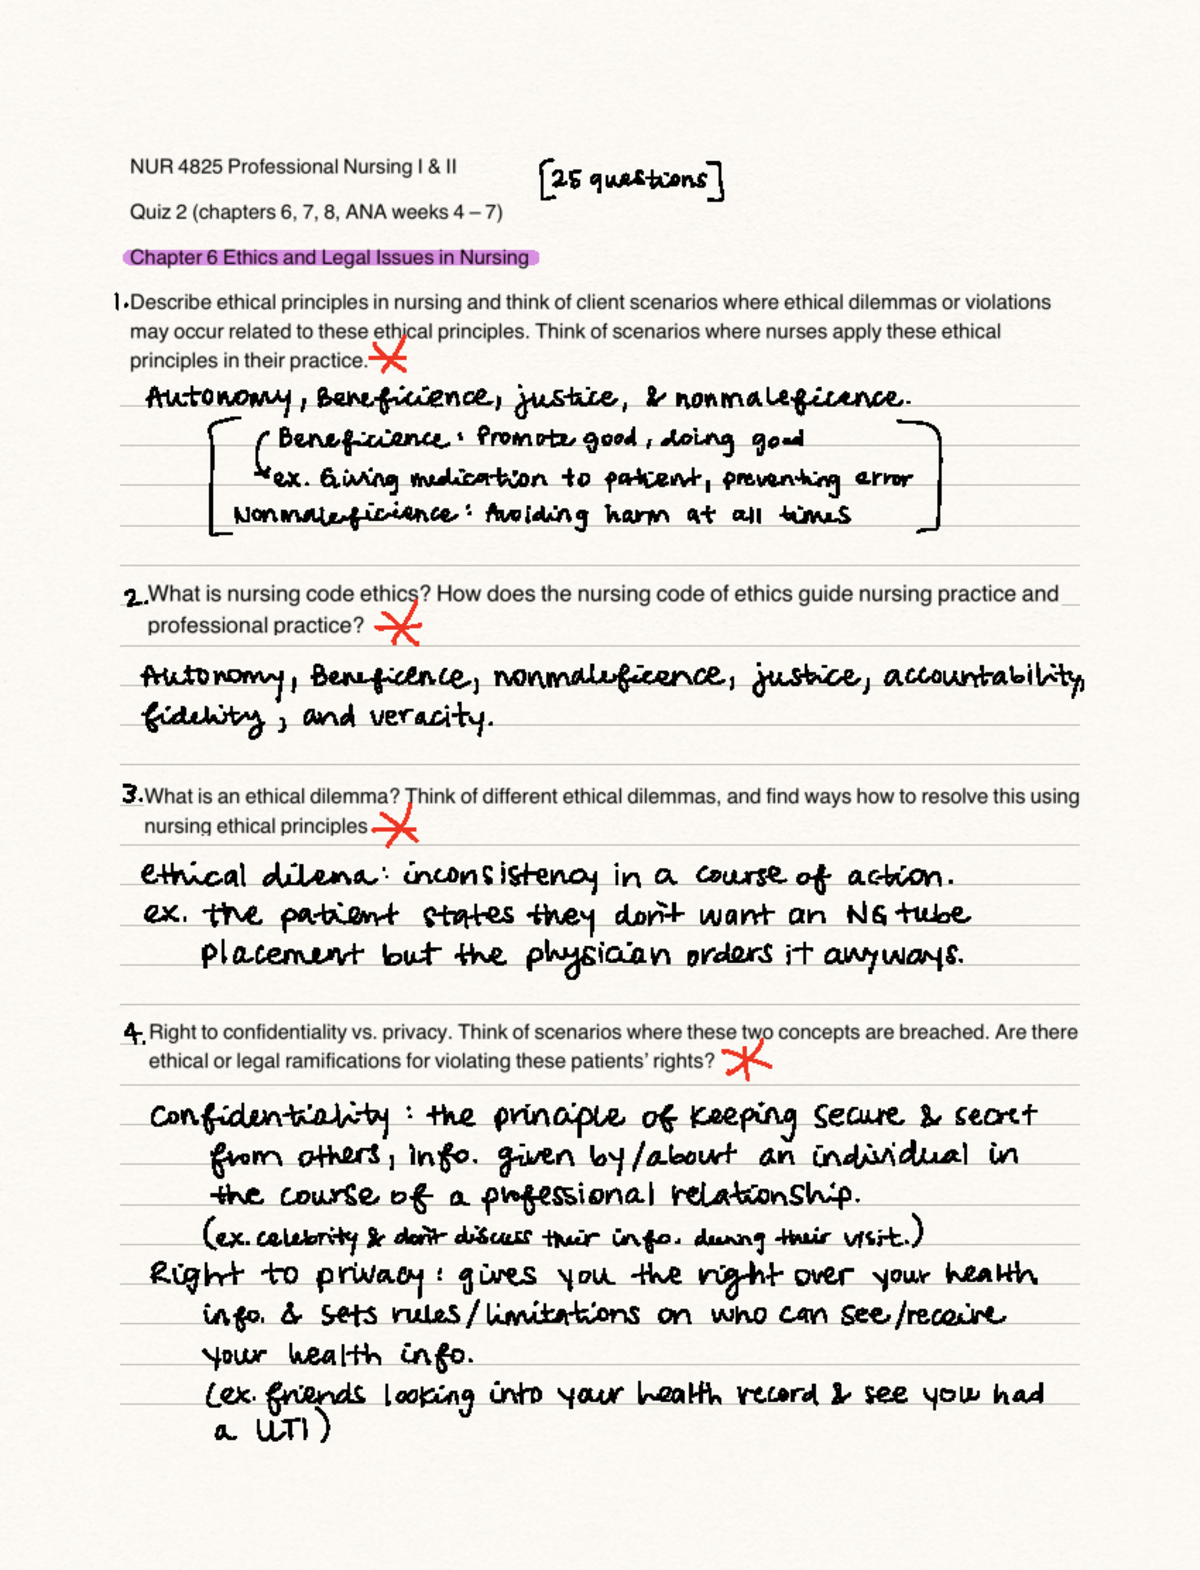 NUR 4825 Professional Nursing I & II
[25 questions]
Quiz 2 (chapters 6, 7, 8, ANA weeks 4 – 7)
Chapter 6 Ethics and Legal Issues in Nursing
1. Describe ethical principles in nursing and think of client scenarios where ethical dilemmas or violations
may occur related to these ethical principles. Think of scenarios where nurses apply these ethical
principles in their practice.
Autonomy, Beneficience, justice, & nonmaleficence.
Beneficience: Promote good, doing good
ex. Giving medication to patient, preventing error
Nonmaleficience: Avoiding harm at all times
2. What is nursing code ethics? How does the nursing code of ethics guide nursing practice and
professional practice?
Autonomy, Beneficence, nonmaleficence, justice, accountability,
fidelity, and veracity.
3. What is an ethical dilemma? Think of different ethical dilemmas, and find ways how to resolve this using
nursing ethical principles
ethical dilema: inconsistency in a course of action.
ex. the patient states they don't want an NG tube
placement but the physician orders it anyways.
4. Right to confidentiality vs. privacy. Think of scenarios where these two concepts are breached. Are there
ethical or legal ramifications for violating these patients' rights?
Confidentiality: the principle of keeping secure & secret
from others, info. given by/about an individual in
the course of a professional relationship.
(ex. celebrity & don't discuss their info. during their visit.)
Right to privacy: gives you the right over your health
info. & sets rules/limitations on who can see/receive
your health info.
(ex. friends looking into your health record & see you had
a UTI)